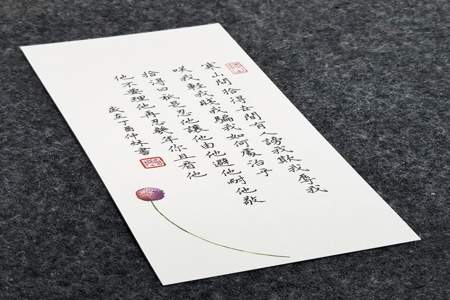 寒山問拾得世間有人謗我欺我辱我
咲我輕我賤我騙我如何處治乎
拾得曰祇是忍他讓他由他避他耐他敬
他不要理他再忍幾年你且看他
歲在丁酉仲秋書